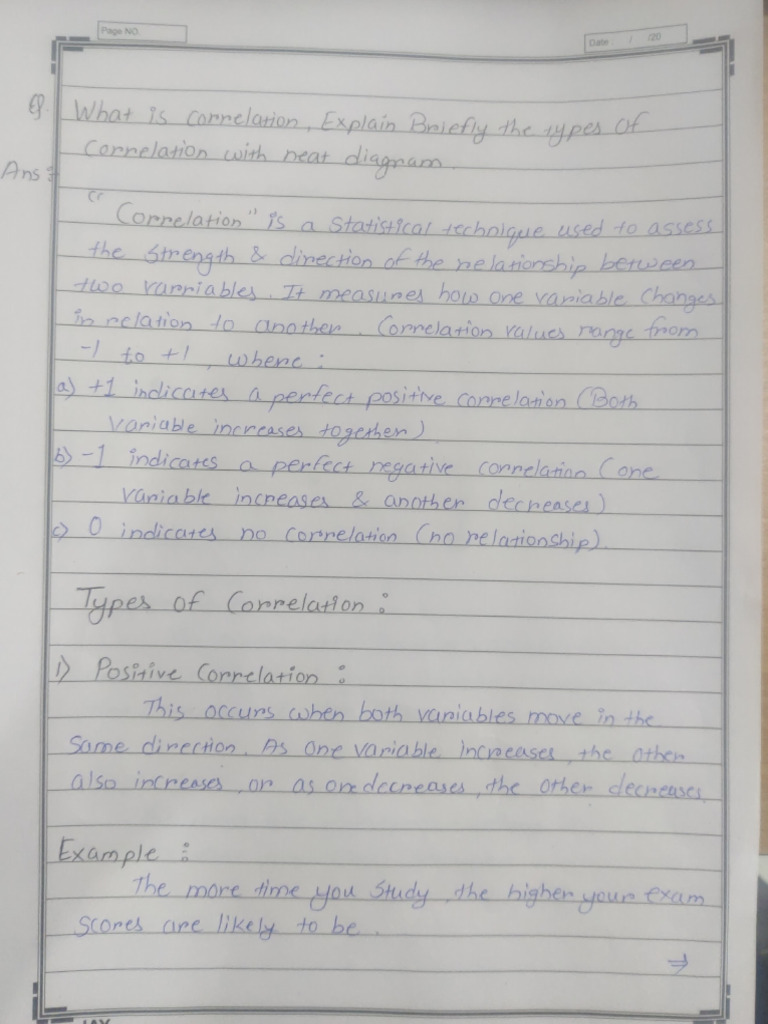 Page NO.
Date: / /20
Q. What is correlation, Explain Briefly the types of
correlation with neat diagram.
Ans :
"Correlation" is a statistical technique used to assess
the strength & direction of the relationship between
two varriables. It measures how one variable changes
in relation to another. Correlation values range from
-1 to +1, where :
a) +1 indicates a perfect positive correlation (Both
variable increases together)
b) -1 indicates a perfect negative correlation (one
variable increases & another decreases)
c) 0 indicates no correlation (no relationship).
Types of Correlation :
1) Positive Correlation :
This occurs when both variables move in the
same direction. As one variable increases, the other
also increases, or as one decreases, the other decreases.
Example :
The more time you study, the higher your exam
scores are likely to be.
⇒